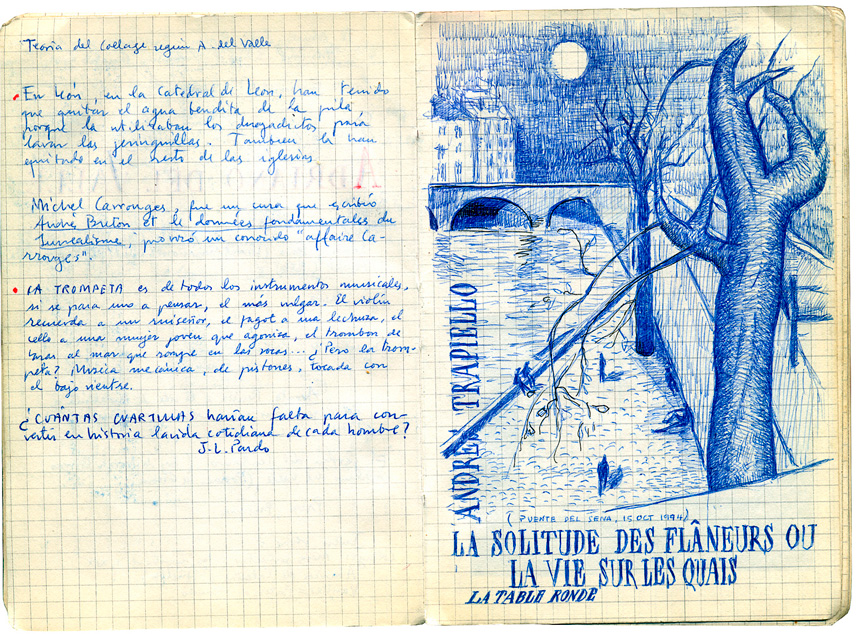 Teoría del collage según A. del Valle
En León, en la Catedral de León, han tenido
que quitar el agua bendita de la pila
porque la utilizaban los drogadictos para
lavar las jeringuillas. Tambien la han
quitado en el resto de las iglesias.
Michel Carrouges, fue un cura que escribió
André Breton et le données fondamentales du
Surrealisme, provocó un conocido "affaire Ca-
rrouges".
LA TROMPETA es de todos los instrumentos musicales,
si se para uno a pensar, el más vulgar. El violín
recuerda a un ruiseñor, el fagot a una lechuza, el
cello a una mujer joven que agoniza, el trombón de
varas al mar que rompe en las rocas... ¿Pero la trom-
peta? Musica mecánica, de pistones, tocada con
el bajo vientre.
¿CUÁNTAS CUARTILLAS harían falta para con-
vertir en historia la vida cotidiana de cada hombre?
J.L. Pardo
ANDRES TRAPIELLO
(PUENTE DEL SENA, 15 OCT 1994)
LA SOLITUDE DES FLÂNEURS OU
LA VIE SUR LES QUAIS
LA TABLE RONDE